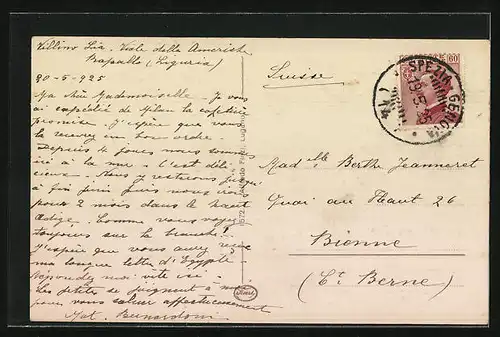 Villino Lia - Viale delle Americhe
Rapallo (Liguria)
20-5-925
Ma Mlle Mademoiselle - Je vous
ai expédié de Milan la cafetière
promise j'espère que vous
la recevrez en bon ordre.
Depuis 4 jours nous sommes
ici à la mer - C'est déli-
cieux - Nous y resterons jusqu'
à fin juin puis nous irons
pour 2 mois dans le haut
Adige. Comme vous voyez
toujours sur la branche!
J'espère que vous avez reçu
ma longue lettre d'Egypte
Répondez moi vite ici -
Les petites se joignent à moi
pour vous saluer affectueusement
Mat. Bernardoni
Suisse
60
SPEZIA GENOVA
19.5.25
Mad elle Berthe Jeanneret
Quai du Haut 26
Bienne
(Ct. Berne)